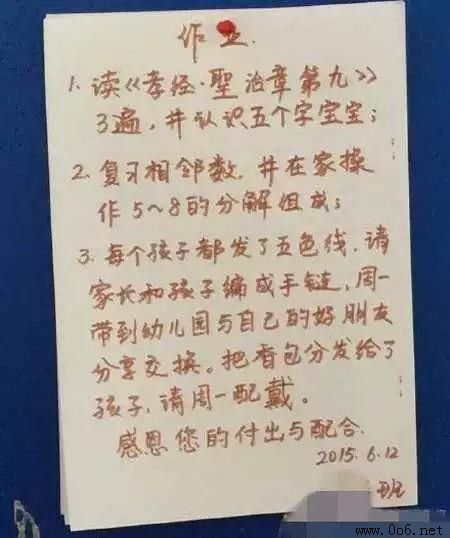 作业.
1. 读《孝经·聖治章第九》
3遍，并认识五个字宝宝；
2. 复习相邻数，并在家操
作5~8的分解组成；
3. 每个孩子都发了五色线，请
家长和孩子编成手链，周一
带到幼儿园与自己的好朋友
分享交换。把香包分发给了
孩子，请周一配戴。
感恩您的付出与配合.
2015.6.12
班
www.0o6.net